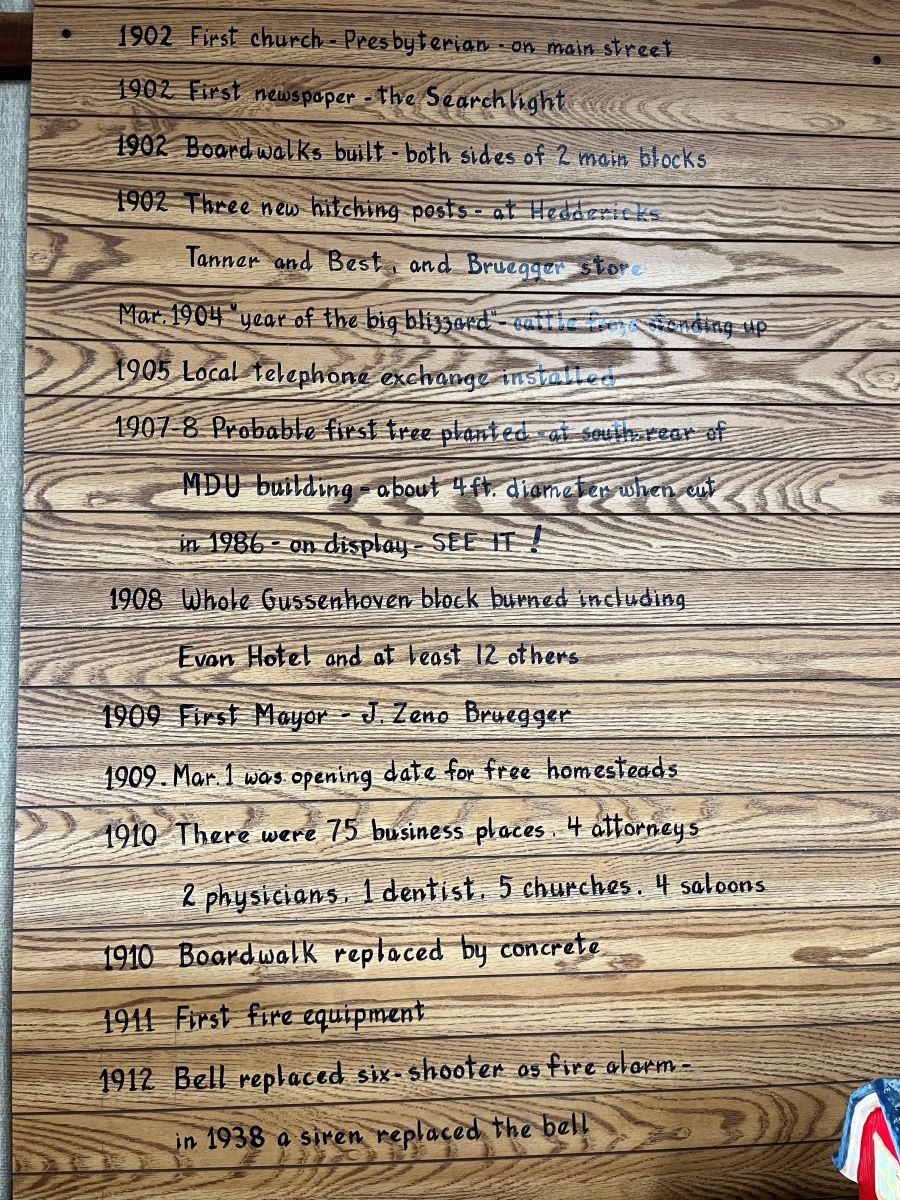 1902 First church - Presbyterian - on main street
1902 First newspaper - the Searchlight
1902 Boardwalks built - both sides of 2 main blocks
1902 Three new hitching posts - at Heddericks
Tanner and Best, and Bruegger store
Mar. 1904 "year of the big blizzard" - cattle froze standing up
1905 Local telephone exchange installed
1907-8 Probable first tree planted - at south rear of
MDU building - about 4 ft. diameter when cut
in 1986 - on display - SEE IT !
1908 Whole Gussenhoven block burned including
Evan Hotel and at least 12 others
1909 First Mayor - J. Zeno Bruegger
1909. Mar. 1 was opening date for free homesteads
1910 There were 75 business places. 4 attorneys
2 physicians. 1 dentist. 5 churches. 4 saloons
1910 Boardwalk replaced by concrete
1911 First fire equipment
1912 Bell replaced six-shooter as fire alarm -
in 1938 a siren replaced the bell